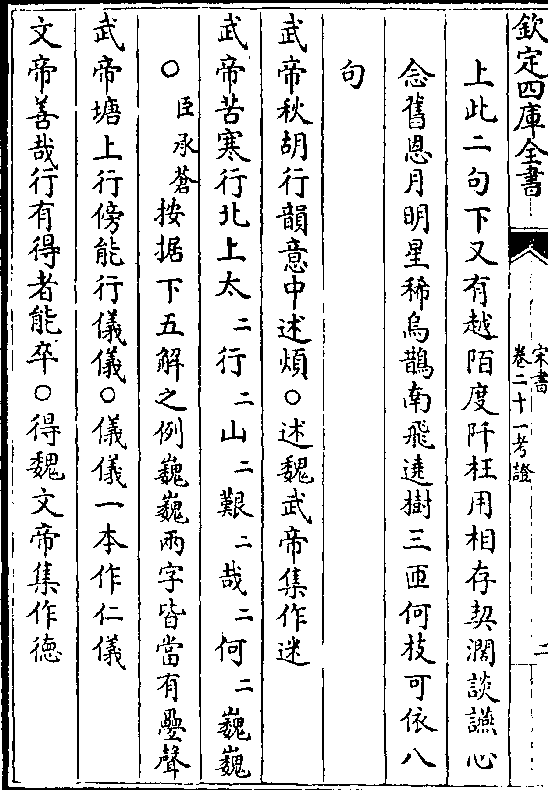 欽定四庫全書
宋書
卷二十一考證
二
上此二句下又有越陌度阡枉用相存契濶談讌心
念舊恩月明星稀烏鵲南飛遶樹三匝何枝可依八
句
武帝秋胡行韻意中述煩○述魏武帝集作迷
武帝苦寒行北上太二行二山二艱二哉二何二巍巍
○臣承蒼按据下五解之例巍巍兩字皆當有疊聲
武帝塘上行傍能行儀儀○儀儀一本作仁儀
文帝善哉行有得者能卒○得魏文帝集作德